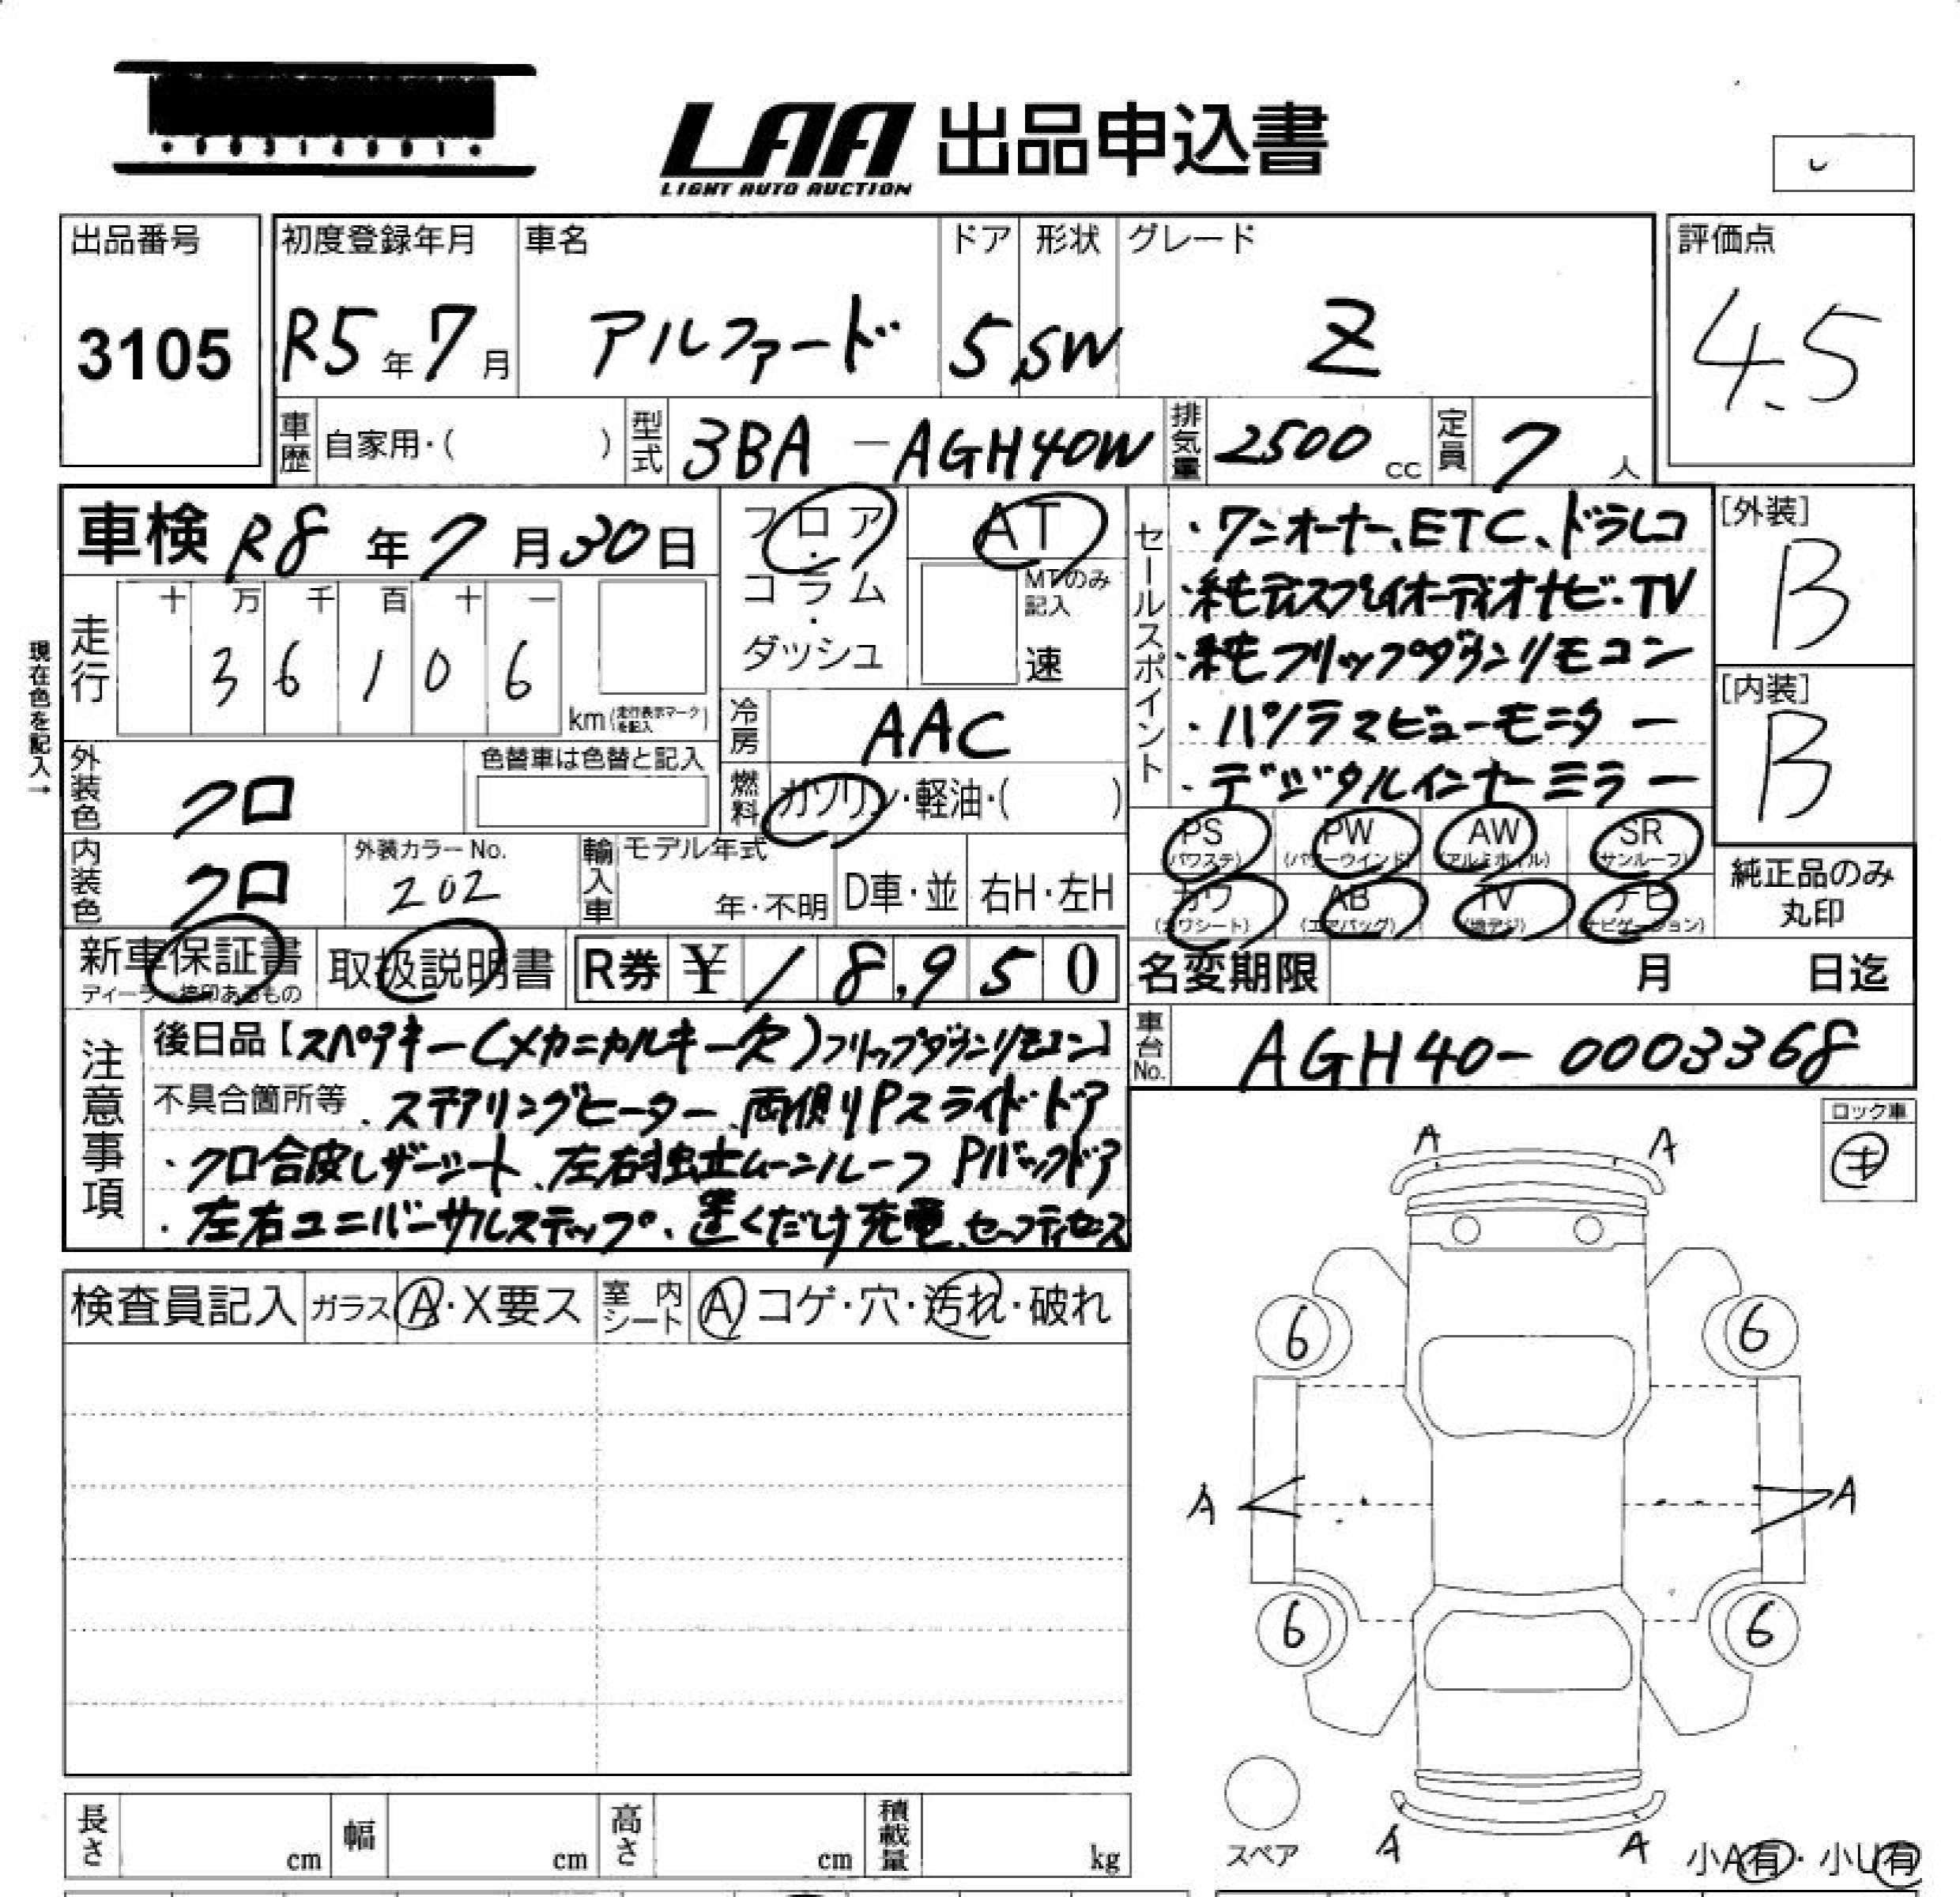 LAA 出品申込書
LIGHT AUTO AUCTION
出品番号 初度登録年月 車名 ドア 形状 グレード 評価点
3105 R5年7月 アルファード 5 SW Z 4.5
車歴 自家用・( ) 型式 3BA-AGH40W 排気量 2500cc 定員 7人
車検 R8年7月30日
フロア・コラム・ダッシュ
AT
MTのみ記入
速
現在色を記入→
走行 十 万 千 百 十 一
3 6 1 0 6 km(走行表示マークを記入)
冷房 AAC
燃料 ガソリン・軽油・( )
外装色 クロ 色替車は色替と記入
内装色 クロ 外装カラーNo. 202 輸入車 モデル年式 年・不明 D車・並 右H・左H
セールスポイント
・ワンオーナー、ETC、ドラレコ
・純正ディスプレイオーディオナビ・TV
・純正フリップダウンリモコン
・パノラマビューモニター
・デジタルインナーミラー
[外装] B
[内装] B
PS PW AW SR
(パワステ) (パワーウインド) (アルミホイル) (サンルーフ)
カワ AB TV ナビ
(カワシート) (エアバッグ) (地デジ) (ナビゲーション)
純正品のみ丸印
新車保証書 取扱説明書 R券 ¥18,950
ディーラー捺印あるもの
名変期限 月 日迄
車台No. AGH40-0003368
注意事項
後日品【スペアキー(メカニカルキー欠)フリップダウンリモコン】
不具合箇所等、ステアリングヒーター、両側Pスライドドア
・クロ合皮レザーシート、左右独立ムーンルーフ Pバックドア
・左右ユニバーサルステップ、置くだけ充電、セーフティセンス
ロック車
検査員記入 ガラス A・X要ス 室内シート A コゲ・穴・汚れ・破れ
A A
6 6
A A
6 6
スペア
A A
小A有・小U有
長さ cm 幅 cm 高さ cm 積載量 kg